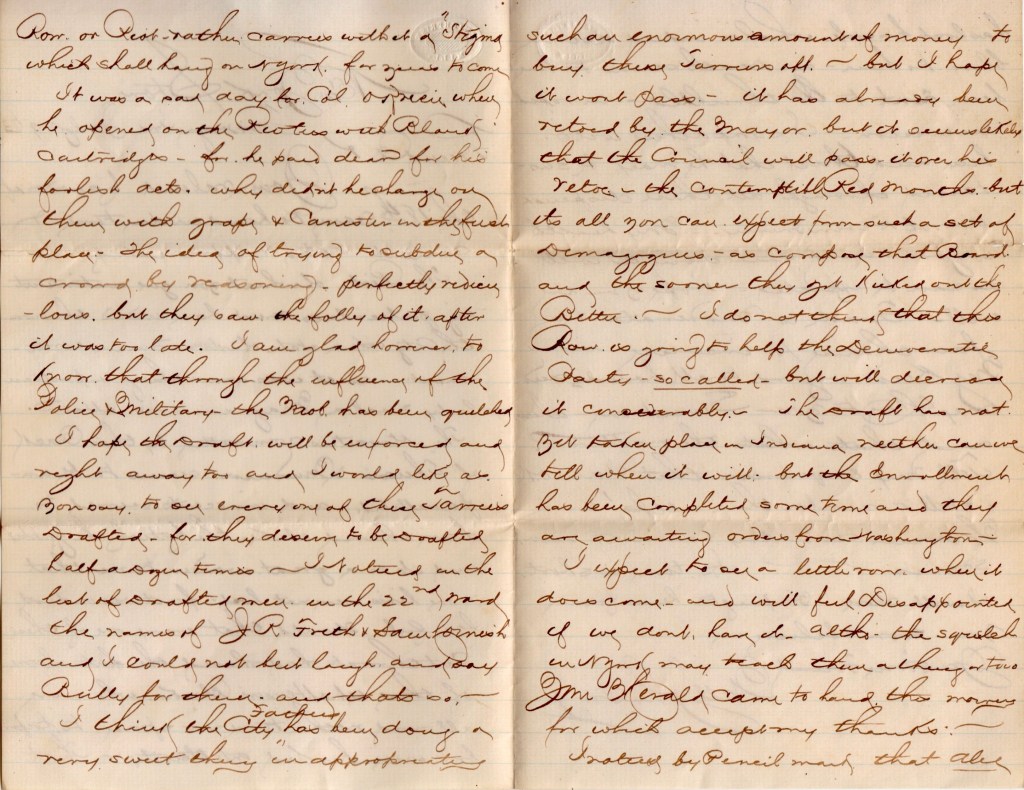 Row. or Riot - rather carries with it a "Stigma
which shall hang on N York. for years to come
It was a sad day for. Col. O Brien when
he. opened on the Rioters with Blank
Cartridges - for. he paid dear for his
foolish acts. why didn't he charge on
them with grape & Canister in the first
place - The idea of trying to subdue a
crowd by reasoning - perfectly redicu
-lous. but they saw the folley of it. after
it was too late. I am glad however. to
Know. that through the influence of the
Police & Military - the Mob. has been quelched
I hope the Draft. will be enforced and
right away too and I would like as
you say. to see every one of these Tarriers
Drafted - for they deserve to be Drafted
half a Dozen times - I Noticed in the
list of Drafted men in the 22nd Ward
the names of J R. Freth &
and I could not but laugh and say
Bully for them. and thats so. -
I think the City Fathers has been doing a
very sweet thing "in appropriating
such an enormous amount of money to
buy these Tarriers off. - but I hope
it wont pass. - it has already been
vetoed by the Mayor. but it seems likely
that the Council will pass it over his
vetoe - the contemptible Red Mouths. but
its all you can expect from such a set of
Demagogues. - as compose that Board.
and the sooner they get Kicked out the
Better. - I do not think that this
Row. is going to help the Democratic
Party - so called - but will decrease
it considerably. - The Draft has not.
yet taken place in Indiana neither can we
tell when it will. but the Enrollment
has been completed some time and they
are awaiting orders from Washington -
I expect to see a little row. when it
does come - and will feel Disappointed
if we dont. have it - altho - the squelch
in N York may teach them a thing or two
Your Herald came to hand this morning
for which accept my thanks. -
I noticed by Pencil mark that Alex